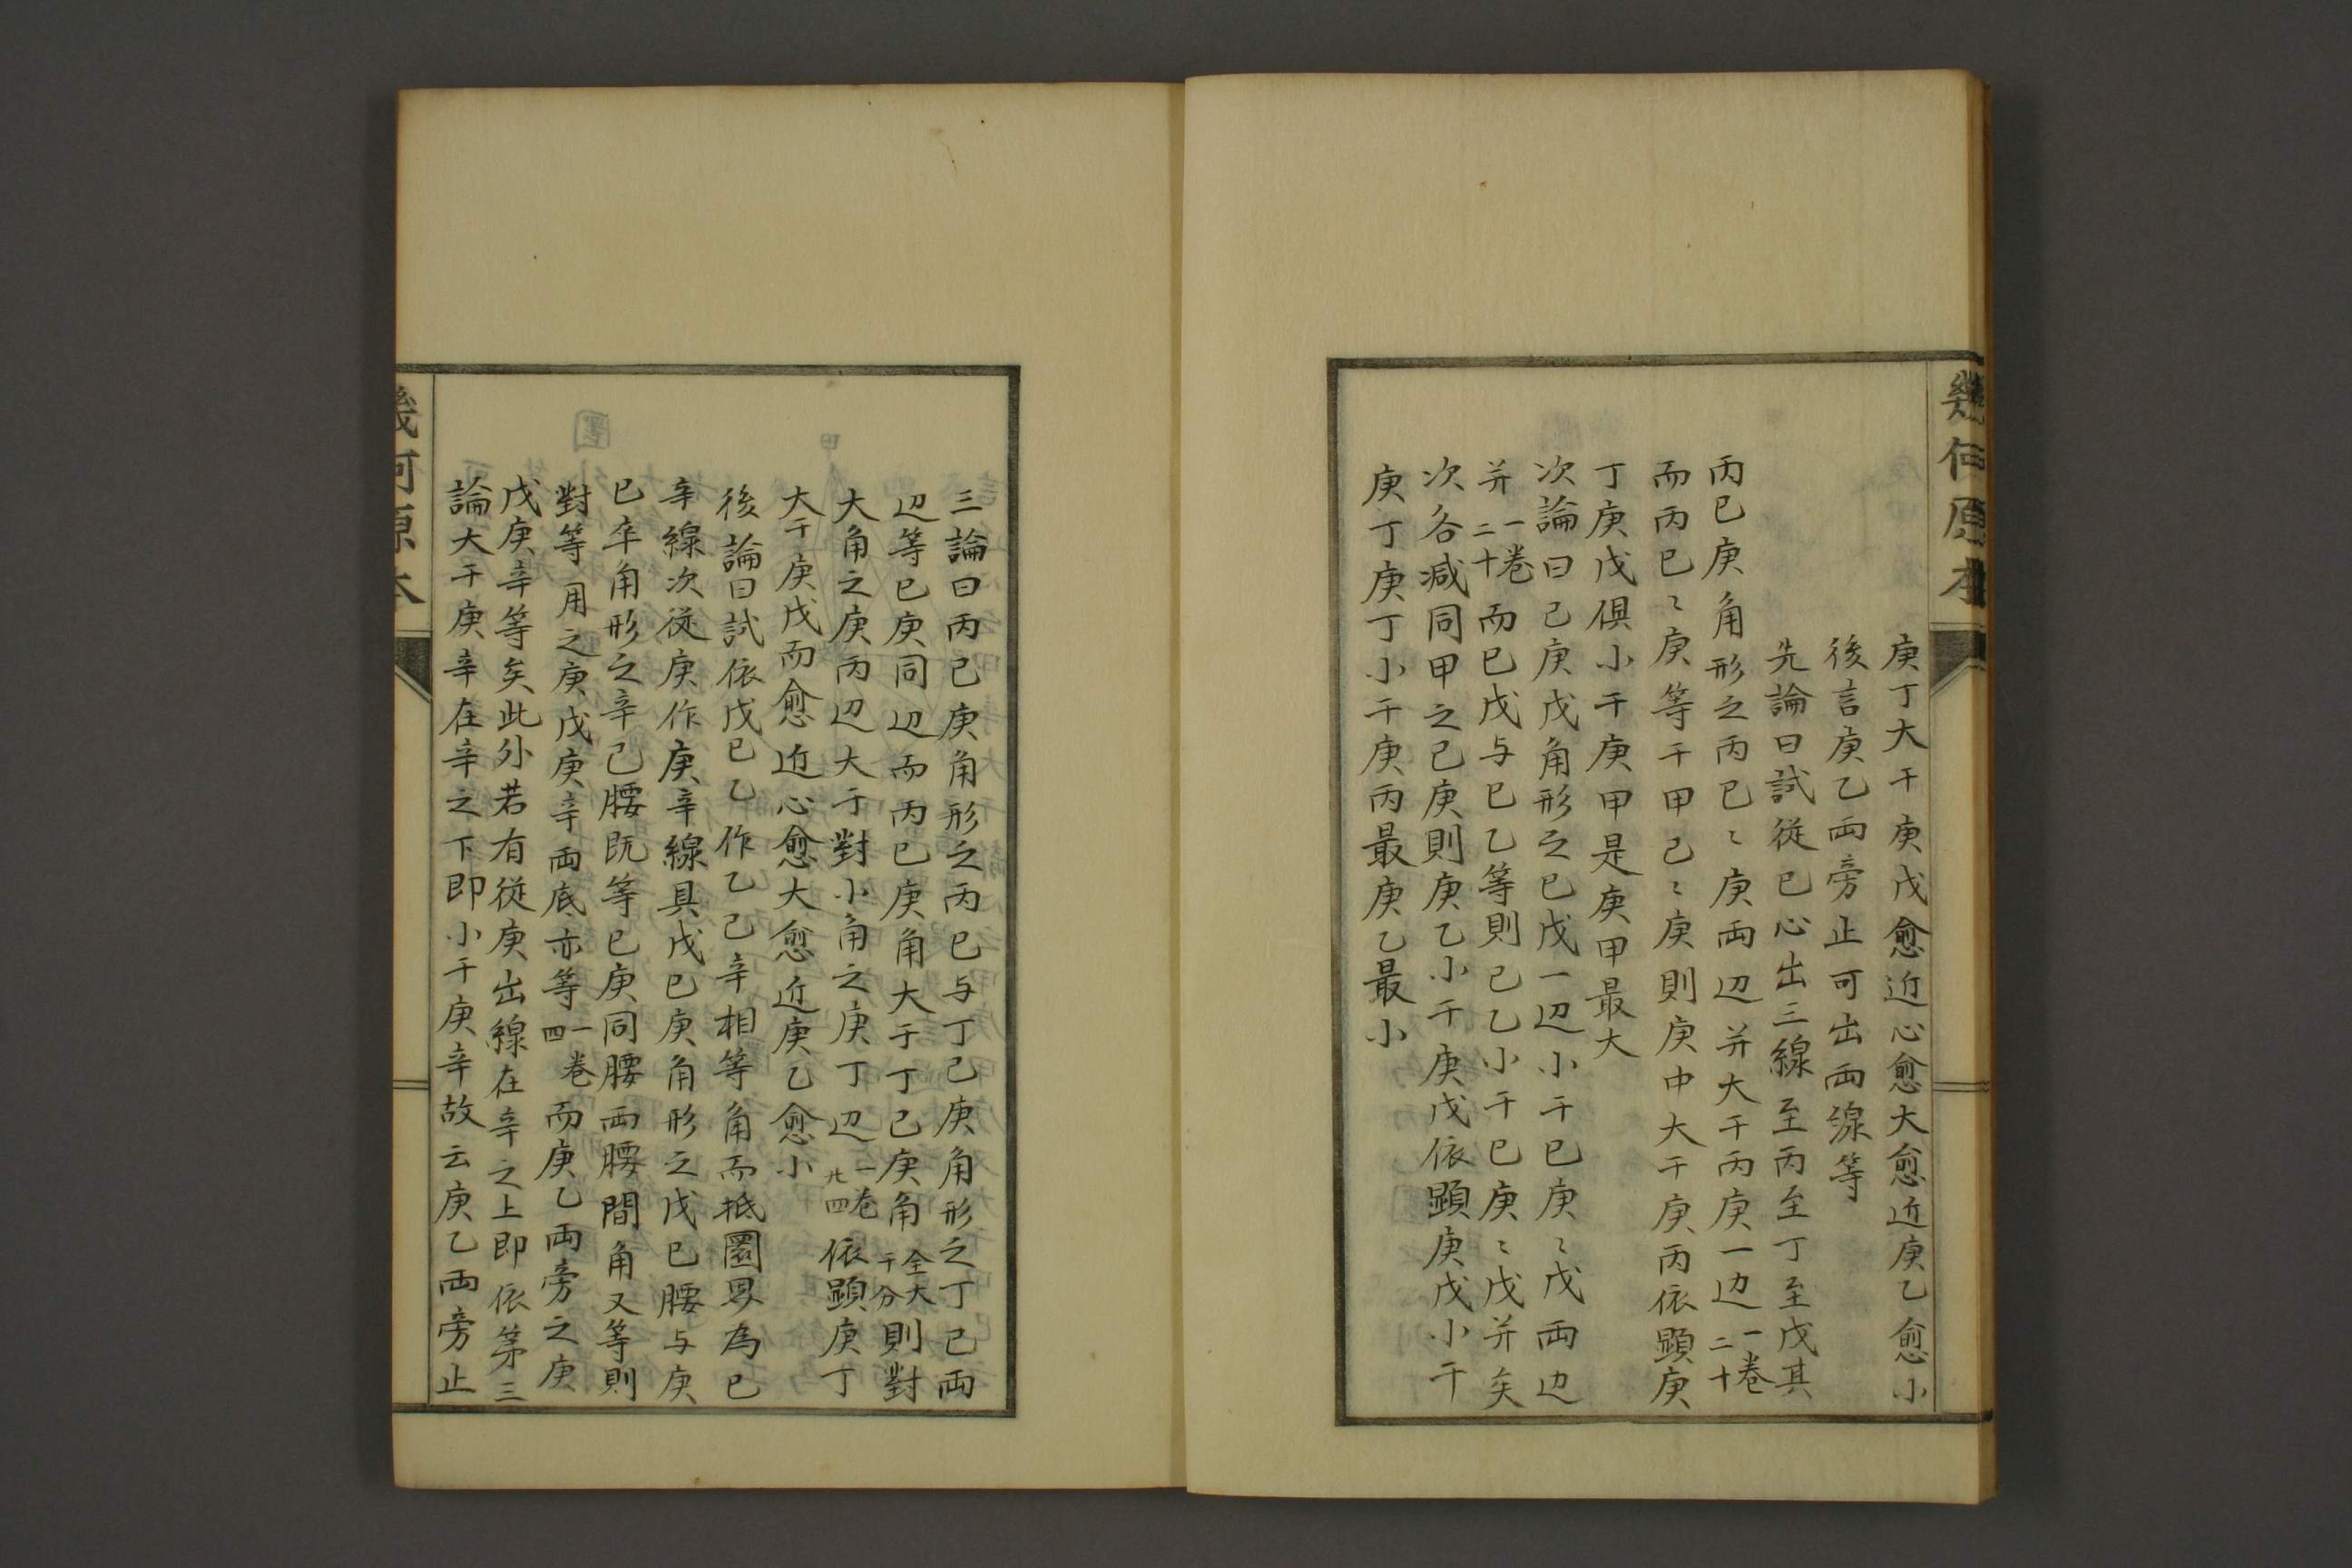 幾何原本
庚丁大于庚戊愈近心愈大愈近庚乙愈小
後言庚乙両旁止可出両線等
先論曰試従己心出三線至丙至丁至戊其
丙己庚角形之丙己〻庚両辺并大于丙庚一边一卷二十
而丙己〻庚等于甲己〻庚則庚中大于庚丙依顕庚
丁庚戊俱小于庚甲是庚甲最大
次論曰己庚戊角形之己戊一辺小于己庚〻戊両边
并一卷二十而己戊与己乙等則己乙小于己庚〻戊并矣
次各减同甲之己庚則庚乙小于庚戊依顕庚戊小于
庚丁庚丁小于庚丙最庚乙最小
三論曰丙己庚角形之丙己与丁己庚角形之丁己両
辺等己庚同辺而丙己庚角大于丁己庚角全大于分則對
大角之庚丙辺大于對小角之庚丁辺一卷廿四依顕庚丁
大于庚戊而愈近心愈大愈近庚乙愈小
後論曰試依戊己乙作乙己辛相等角而抵圜界為己
辛線次従庚作庚辛線具戊己庚角形之戊己腰与庚
己辛角形之辛己腰既等己庚同腰両腰間角又等則
對等角之庚戊庚辛両底亦等一卷四而庚乙両旁之庚
戊庚辛等矣此外若有従庚出線在辛之上即依第三
論大于庚辛在辛之下即小于庚辛故云庚乙両旁止
幾何原本